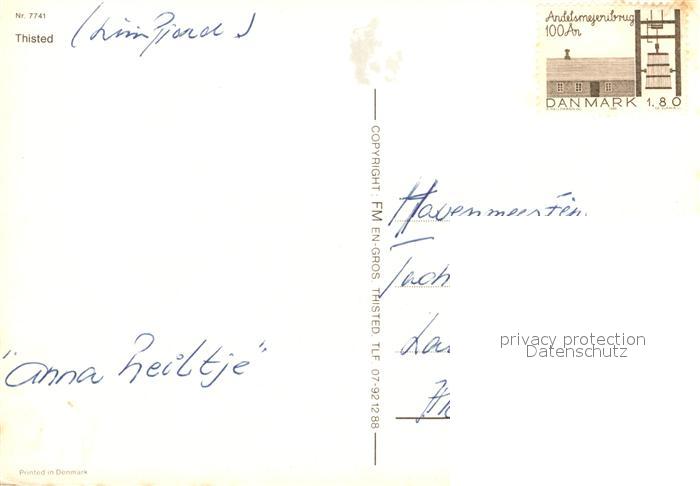 Nr. 7741
Thisted (Limfjord)
"anna Reiltje"
Printed in Denmark
COPYRIGHT: FM EN-GROS, THISTED, TLF 07-92 12 88
Andelsmejeribrug
100 År
DANMARK 1.80
Havenmeester
privacy protection
Datenschutz